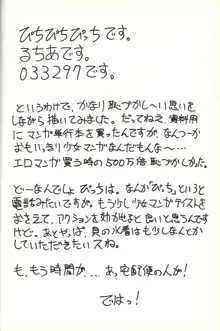 ぴちぴちぴっちです。
るちあです。
033297です。
というわけで、かなり恥づかし~い思いを
しながら描いてみました。だってねえ、資料用
にマンガ単行本を買ったんですが、なんつーか
おもいっきり少女マンガなんだもんな~
エロマンガ買う時の500万倍恥づかしかった。
どーなんでしょ ぴっちは。なんか「ぴっち」というと
電話みたいですが。もう少し少女マンガテイストを
おさえて、アクションを効かせると良いと思うんです
けど。あとやっぱ、貝の水着はもう少しなんとか
していただきたいスね。
も、もう時間が…。あ、宅配便の人が!
ではっ!